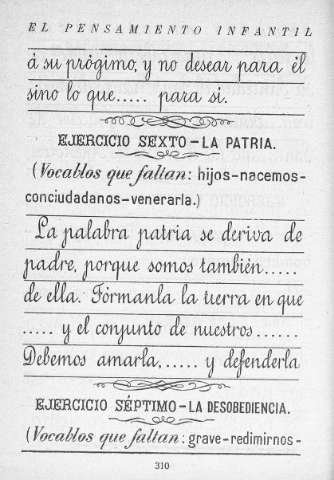 EL PENSAMIENTO INFANTIL
á su prógimo, y no desear para él
sino lo que..... para si.
EJERCICIO SEXTO-LA PATRIA.
(Vocablos que faltan: hijos-nacemos-
conciudadanos-venerarla.)
La palabra patria se deriva de
padre, porque somos también.....
de ella. Fórmanla la tierra en que
..... y el conjunto de nuestros ......
Debemos amarla, ..... y defenderla
EJERCICIO SÉPTIMO-LA DESOBEDIENCIA.
(Vocablos que faltan: grave-redimirnos-
310